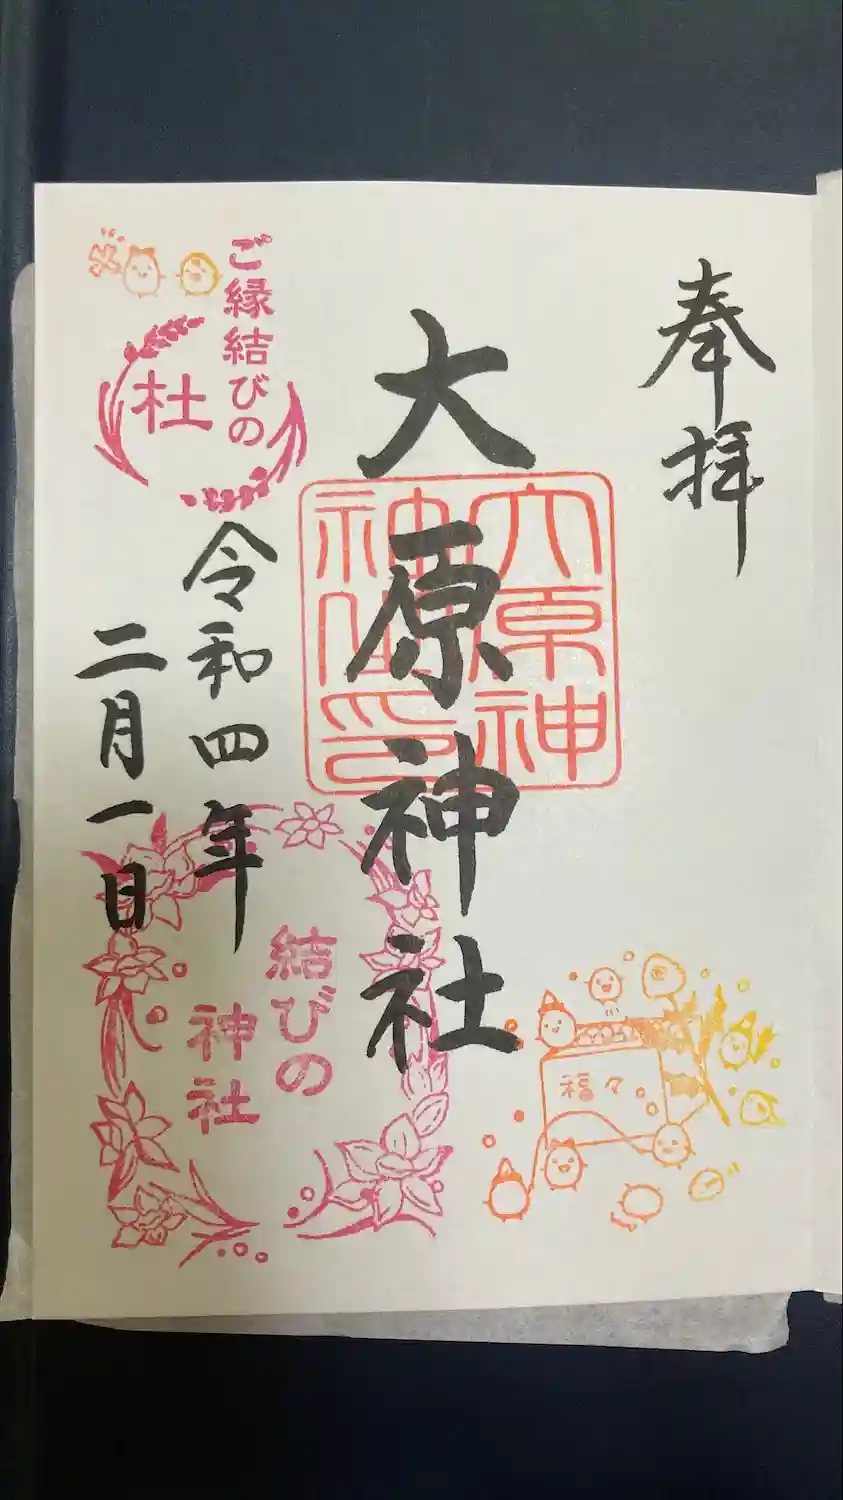 奉拝
大原神社
大原神
神社印
福々
ご縁結びの
杜
令和四年
二月一日
結びの
神社